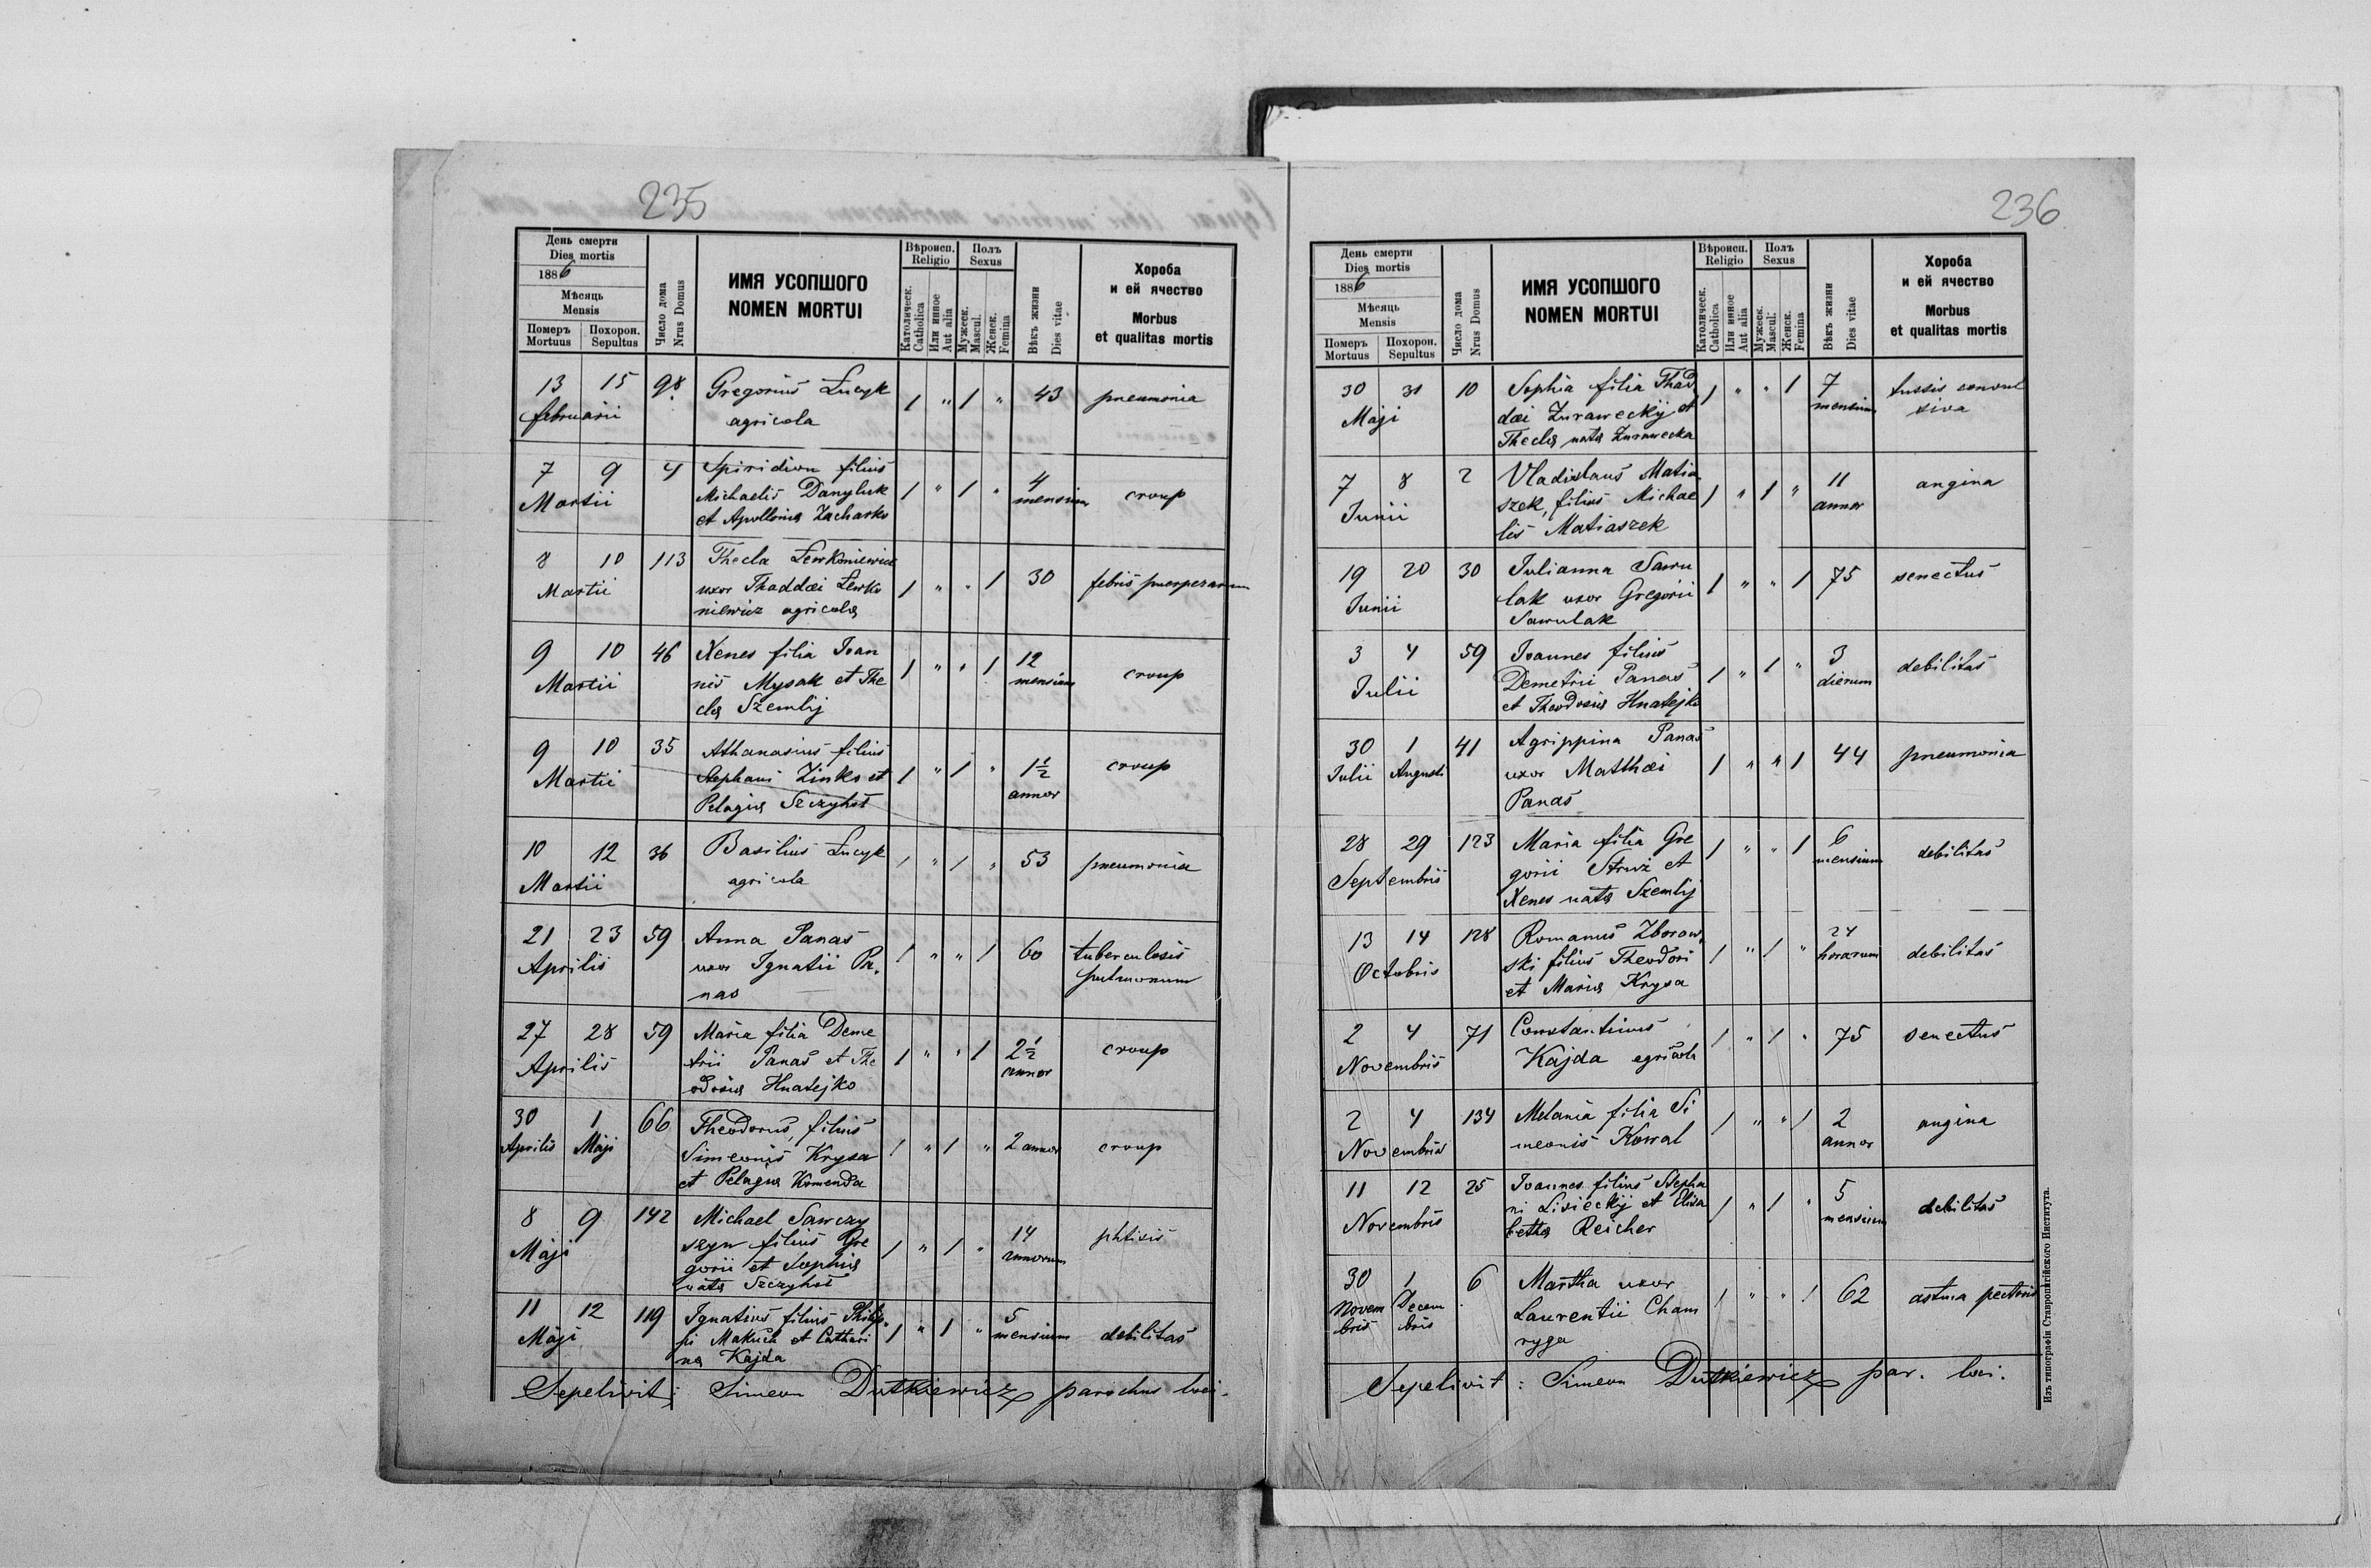 235
День смерти
Dies mortis
1886
Мѣсяць
Mensis
Померъ
Mortuus
Похорон.
Sepultus
Число дома
Nrus Domus
ИМЯ УСОПШОГО
NOMEN MORTUI
Вѣроисп.
Religio
Католическ.
Catholica
Или инное
Aut alia
Полъ
Sexus
Мужеск.
Mascul.
Женск.
Femina
Вѣкъ жизни
Dies vitae
Хороба
и ей ячество
Morbus
et qualitas mortis
13 15 98 Gregorius Łucyk 1 " 1 " 43 pneumonia
februarii agricola
7 9 4 Spiridion filius 4
Martii Michaelis Danyluk 1 " 1 " mensium croup
et Apollonia Zacharko
8 10 113 Thecla Lewkoniewicz
Martii uxor Thaddæi Lewko 1 " " 1 30 febris puerperarum
niewicz agricolæ
9 10 46 Xenes filia Ioan 12
Martii nis Mysak et The 1 " " 1 mensium croup
clæ Szemlij
9 10 35 Athanasius filius
Martii Stephani Zinko et 1 " 1 " 1½ croup
Pelagiæ Szczyhoł annor
10 12 36 Basilius Łucyk 1 " 1 " 53 pneumonia
Martii agricola
21 23 59 Anna Panas 1 " " 1 60 tuberculosis
Aprilis uxor Ignatii Pa, pulmonum
nas
27 28 59 Maria filia Deme
Aprilis trii Panas et The 1 " " 1 2½ croup
odosiæ Hnatejko annor
30 1 66 Theodorus, filius
Aprilis Maji Simeonis Krysa 1 " 1 " 2 annor croup
et Pelagiæ Komenda
8 9 142 Michael Sawczy
Maji szyn filius Gre 1 " 1 " 14 phtisis
gorii et Sophiæ annorum
natæ Szczyhoł
11 12 119 Ignatius filius Philip, 5
Maji pi Makuch et Cathari 1 " 1 " mensium debilitas
næ Kajda
Sepelivit: Simeon Dutkiewicz parochus loci.
236
День смерти
Dies mortis
1886
Мѣсяць
Mensis
Померъ
Mortuus
Похорон.
Sepultus
Число дома
Nrus Domus
ИМЯ УСОПШОГО
NOMEN MORTUI
Вѣроисп.
Religio
Католическ.
Catholica
Или инное
Aut alia
Полъ
Sexus
Мужеск.
Mascul.
Женск.
Femina
Вѣкъ жизни
Dies vitae
Хороба
и ей ячество
Morbus
et qualitas mortis
30 31 10 Sophia filia Thad, 1 " " 1 7 tussis convul
Maji dæi Zuraweckij et mensium siva
Theclæ natæ Zurawecka
7 8 2 Vladislaus Matia, 11 angina
Junii szek, filius Michae 1 " 1 " annor
lis Matiaszek
19 20 30 Julianna Sawu 1 " " 1 75 senectus
Junii lak uxor Gregorii
Sawulak
3 4 59 Ioannes filius 3
Julii Demetrii Panas 1 " 1 " dierum debilitas
et Theodosiæ Hnatejko
30 1 41 Agrippina Panas
Julii Augusti uxor Matthæi 1 " " 1 44 pneumonia
Panas
28 29 123 Maria filia Gre 1 " " 1 6
Septembris gorii Struż et mensium debilitas
Xenes natæ Szemlij
13 14 128 Romanus Zboraw, 24
Octobris ski filius Theodori 1 " 1 " horarum debilitas
et Mariæ Krysa
2 4 71 Constantinus 1 " 1 " 75 senectus
Novembris Kajda agricola
2 4 134 Melania filia Si 1 " " 1 2 angina
Novembris meonis Kowal annor
11 12 25 Ioannes filius Stepha 5
Novembris ni Lisieckij et Elisa 1 " 1 " mensium debilitas
bethæ Reicher
30 1 6 Martha uxor 1 " " 1 62 astma pectoris
Novem Decem Laurentii Cham
bris bris ryga
Sepelivit: Simeon Dutkiewicz par. loci.
Изъ типографіи Ставропигійского Института.